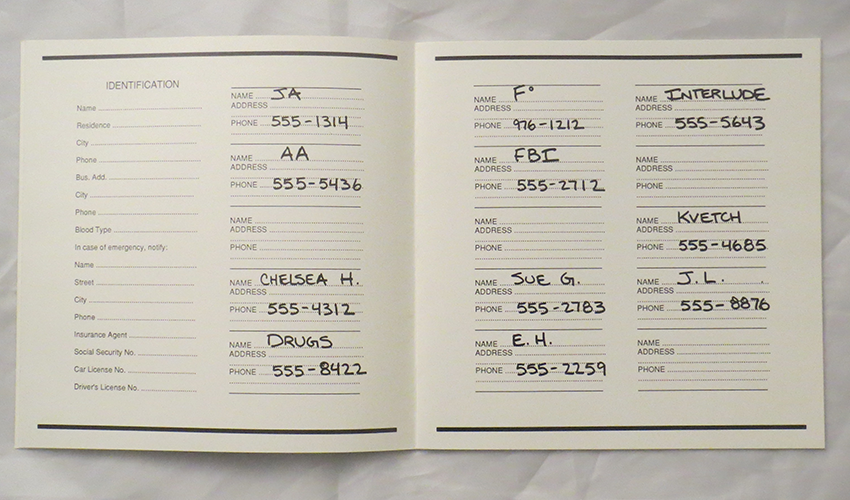 IDENTIFICATION
Name
Residence
City
Phone
Bus. Add.
City
Phone
Blood Type
In case of emergency, notify:
Name
Street
City
Phone
Insurance Agent
Social Security No.
Car License No.
Driver's License No.
NAME JA
ADDRESS
PHONE 555-1314
NAME AA
ADDRESS
PHONE 555-5436
NAME
ADDRESS
PHONE
NAME CHELSEA H.
ADDRESS
PHONE 555-4312
NAME DRUGS
ADDRESS
PHONE 555-8422
NAME F°
ADDRESS
PHONE 976-1212
NAME FBI
ADDRESS
PHONE 555-2712
NAME
ADDRESS
PHONE
NAME SUE G.
ADDRESS
PHONE 555-2783
NAME E.H.
ADDRESS
PHONE 555-2259
NAME INTERLUDE
ADDRESS
PHONE 555-5643
NAME
ADDRESS
PHONE
NAME KVETCH
ADDRESS
PHONE 555-4685
NAME J.L.
ADDRESS
PHONE 555-8876
NAME
ADDRESS
PHONE